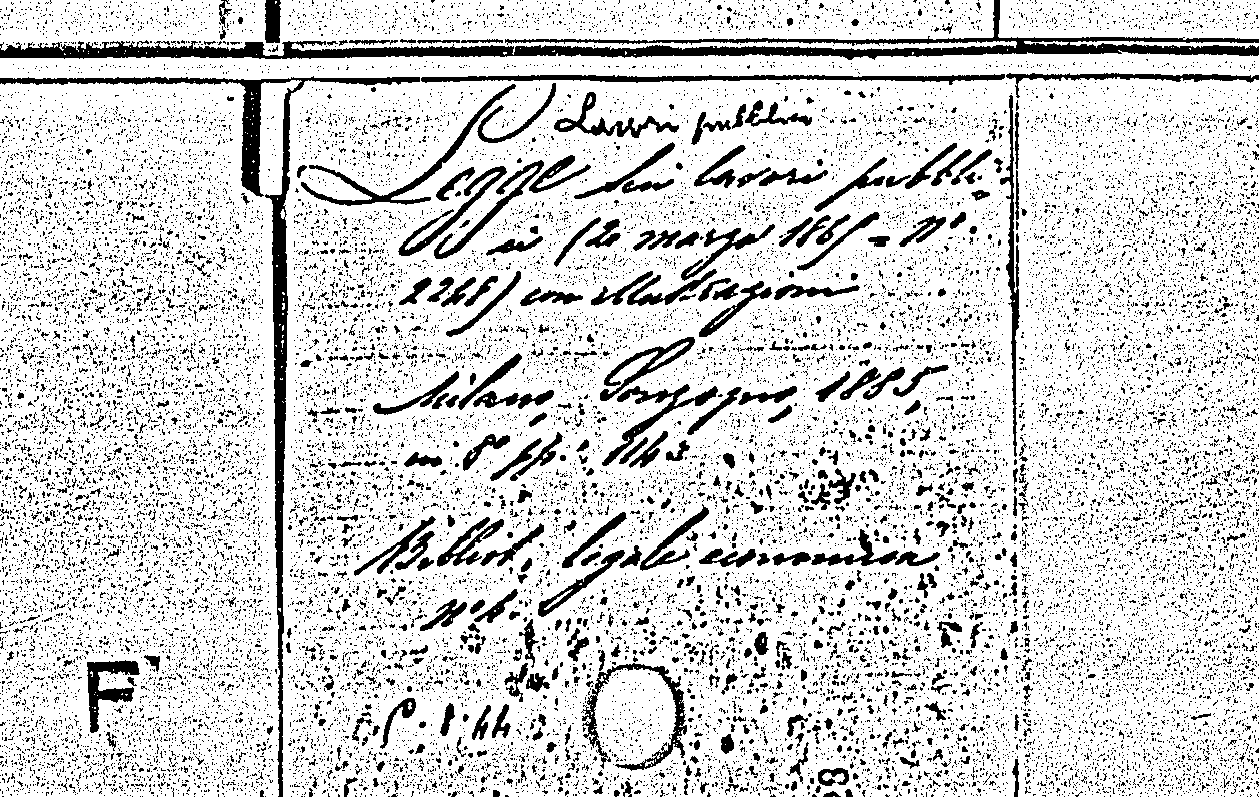 Lavori pubblici
Legge sui lavori pubbli-
ci (20 marzo 1865 = nº.
2248) con illustrazioni
Milano, Sonzogno, 1885,
in 8º pp.
Bibliot. legale economica
F
P. 1.44
8